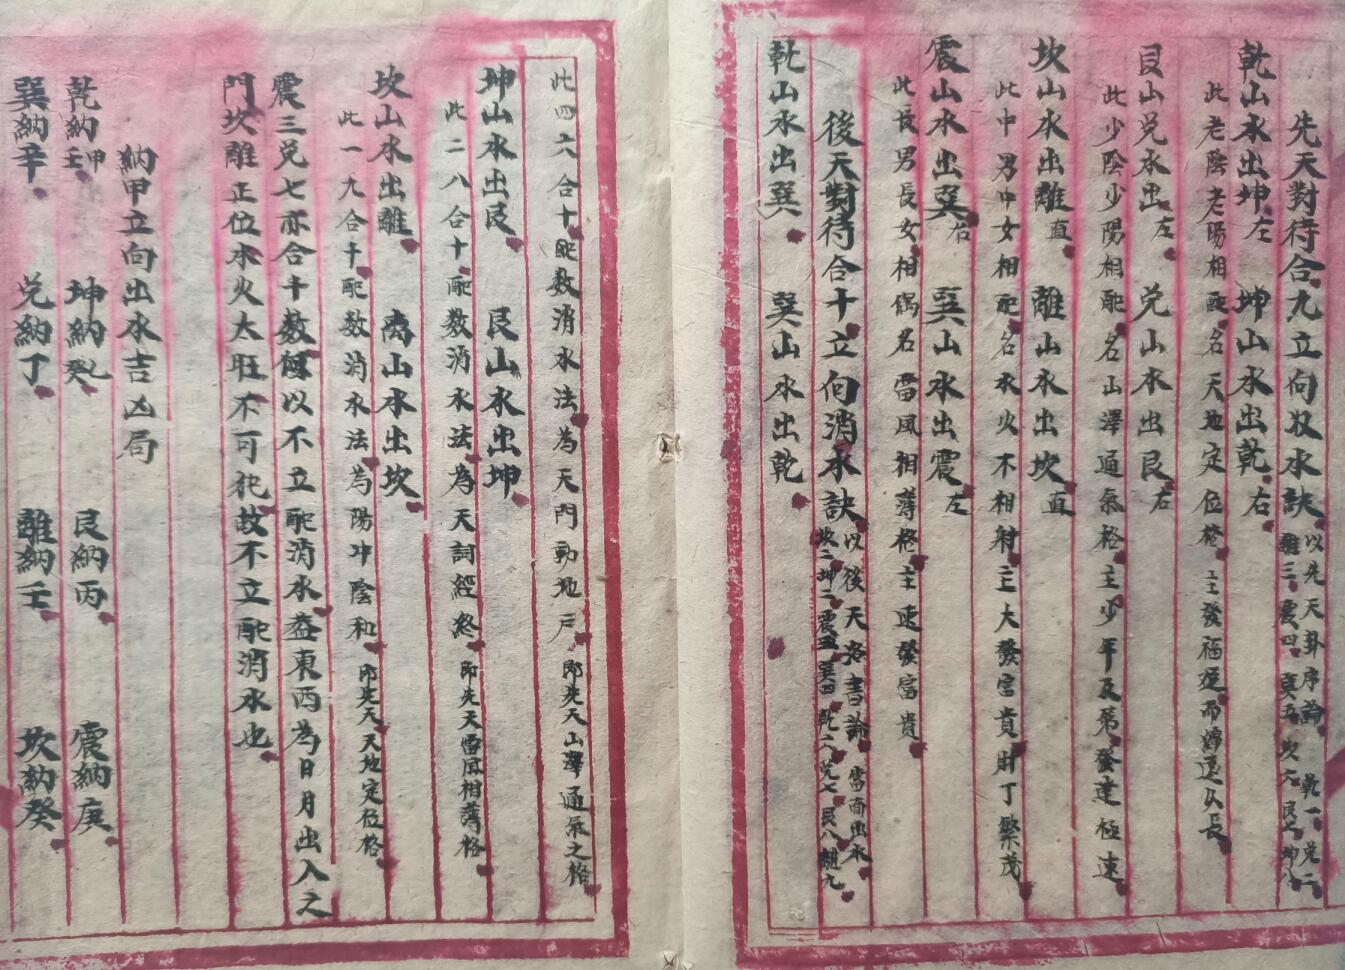 先天對待合九立向收水訣以先天卦序論 乾一兌二離三震四巽五坎六艮七坤八
乾山水出坤左 坤山水出乾右
此老陰老陽相配名天地定位格主發福遲而綿遠久長
艮山兌水出左 兌山水出艮右
此少陰少陽相配名山澤通氣格主少年及第發達極速
坎山水出離直 離山水出坎直
此中男中女相配名水火不相射主大發富貴財丁繁茂
震山水出巽右 巽山水出震左
此長男長女相偶名雷風相薄格主速發富貴
後天對待合十立向消水訣以後天洛書論 當面出水坎一坤二震三巽四乾六兌七艮八離九
乾山水出巽 巽山水出乾
此四六合十配数消水法為天門動地戶即先天山澤通氣之格
坤山水出艮 艮山水出坤
此二八合十配数消水法為天詞經終即先天雷風相薄格
坎山水出離 离山水出坎
此一九合十配数消水法為陽冲陰和即先天天地定位格
震三兌七亦合十数何以不立配消水盖東西為日月出入之
門坎離正位水火太旺不可犯故不立配消水也
納甲立向出水吉凶局
乾納甲壬 坤納乙癸 艮納丙 震納庚
巽納辛 兌納丁 離納壬 坎納癸